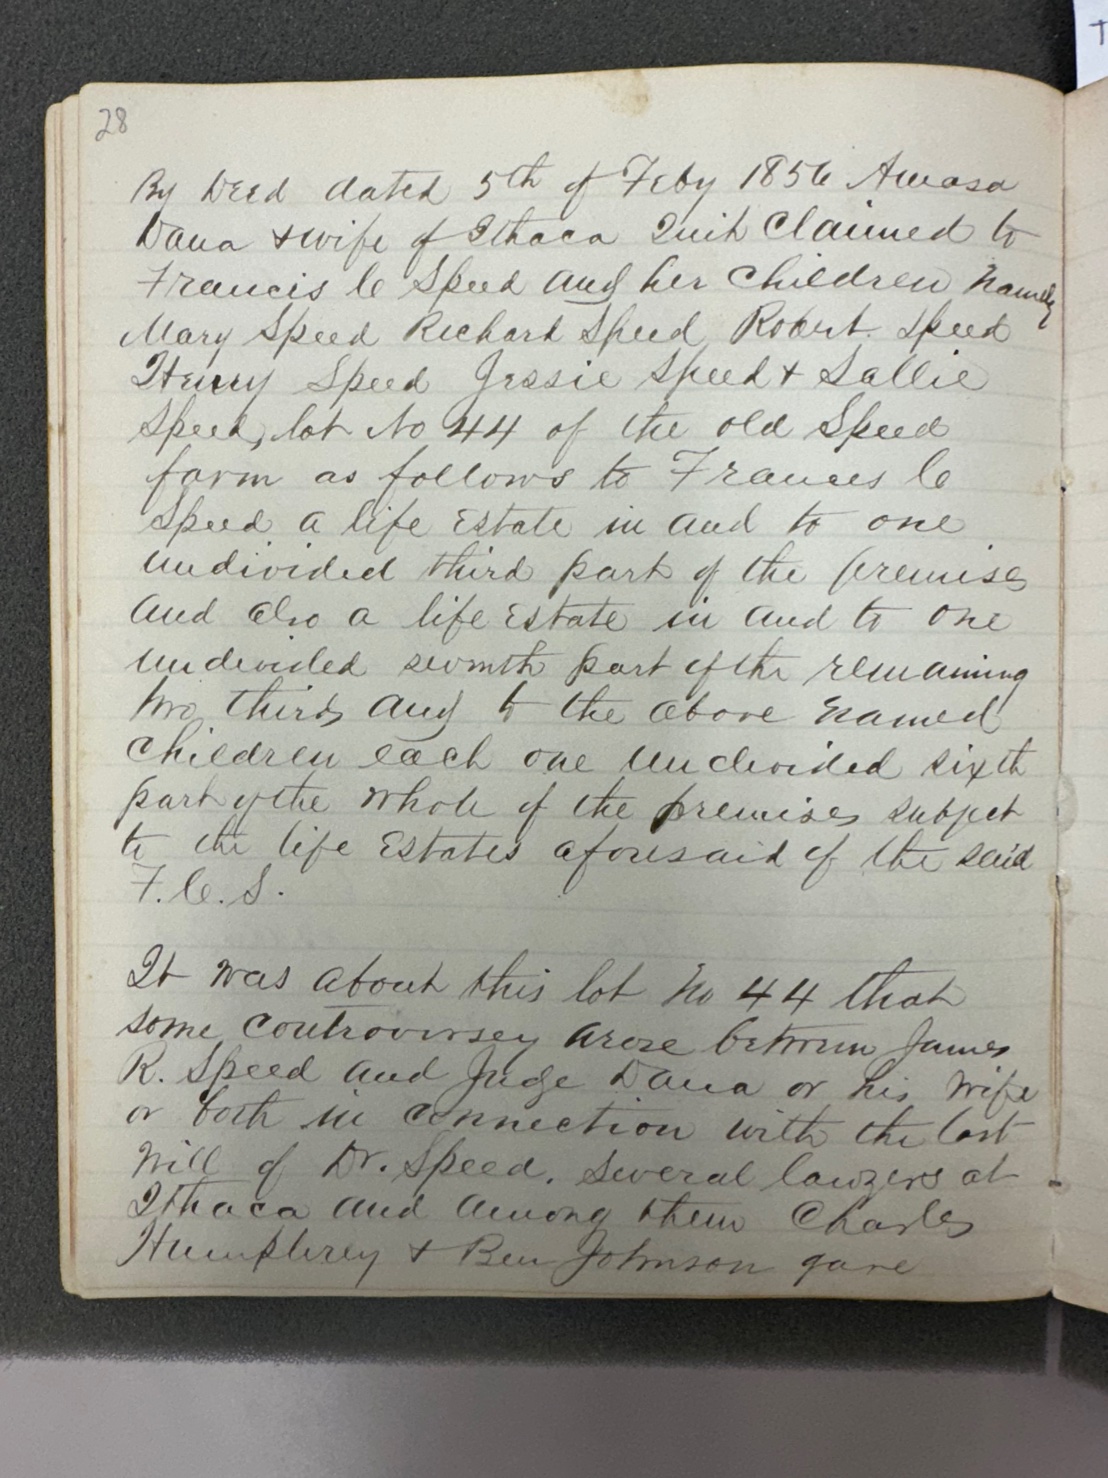 28
By Deed dated 5th of Feby 1856 Amasa
Dana & wife of Ithaca Quit Claimed to
Francis C Speed and her Children namely
Mary Speed Richard Speed Robert Speed
Henry Speed Jessie Speed & Sallie
Speed, lot No 44 of the old Speed
farm as follows to Frances C
Speed a life Estate in and to one
undivided third part of the premises
and also a life Estate in and to one
undivided seventh part of the remaining
two thirds and to the above named
Children each one undivided sixth
part of the whole of the premises subject
to the life Estates aforesaid of the said
F. C. S.
It was about this lot No 44 that
some controversey arose between James
R. Speed and Judge Dana or his wife
or both in connection with the last
Will of Dr. Speed. Several lawyers at
Ithaca and among them Charles
Humphrey & Ben Johnson gave